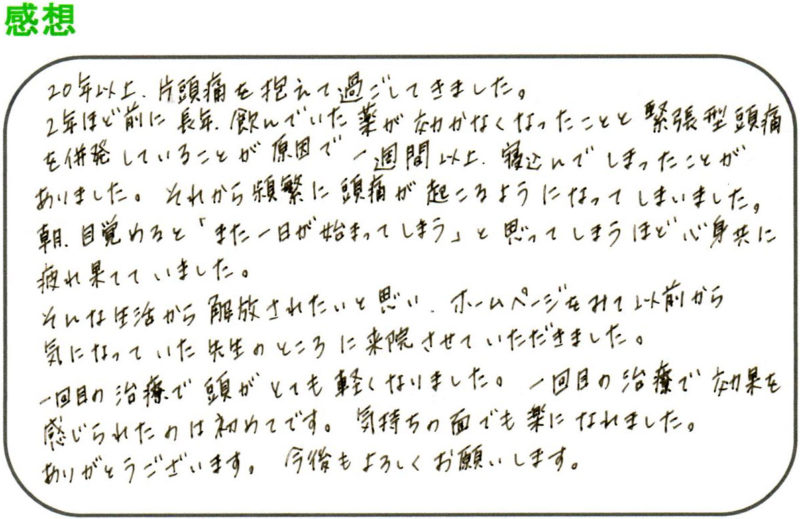 感想
20年以上、片頭痛を抱えて過ごしてきました。
2年ほど前に長年、飲んでいた薬が効かなくなったことと緊張型頭痛
を併発していることが原因で一週間以上、寝込んでしまったことが
ありました。それから頻繁に頭痛が起こるようになってしまいました。
朝、目覚めると「また一日が始まってしまう」と思ってしまうほど心身共に
疲れ果てていました。
そんな生活から解放されたいと思い、ホームページをみて以前から
気になっていた先生のところに来院させていただきました。
一回目の治療で頭がとても軽くなりました。一回目の治療で効果を
感じられたのは初めてです。気持ちの面でも楽になれました。
ありがとうございます。今後もよろしくお願いします。